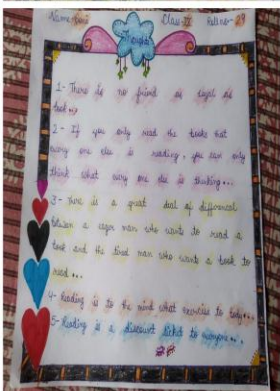 Class-
Roll no- 29
Thought
1- There is no friend as loyal as
book...
2- If you only read the books that
every one else is reading, you can only
think what every one else is thinking...
3- There is a great deal of different
between a eager man who wants to read a
book and the tired man who wants a book to
read...
4- Reading is to the mind what exercise to body...
5- Reading is a discount ticket to everyone...